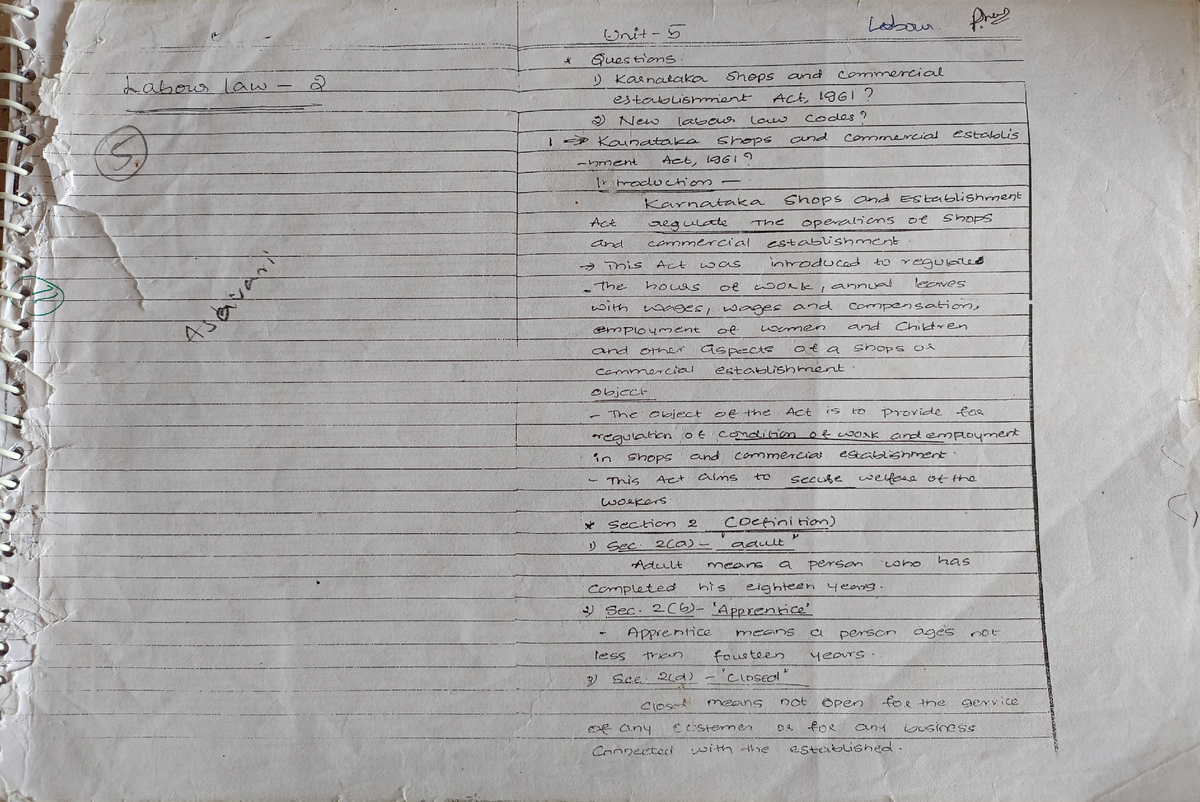 Labour law - 2
5
Ashwani
Unit - 5
Labour
* Questions.
1) Karnataka Shops and commercial
establishment Act, 1961 ?
2) New labour law codes?
1 → Karnataka Shops and commercial establis
-hment Act, 1961 ?
Introduction —
Karnataka Shops and Establishment
Act regulate the operations of shops
and commercial establishment.
→ This Act was introduced to regulate
- The hours of work, annual leaves
with wages, wages and compensation,
employment of women and children
and other aspects of a shops or
commercial establishment.
Object
- The object of the Act is to provide for
regulation of condition of work and employment
in shops and commercial establishment.
- This Act aims to secure welfare of the
workers
* Section 2 (Definition)
1) Sec. 2(a) - "adult"
Adult means a person who has
completed his eighteen years.
2) Sec. 2(b) - 'Apprentice'
- Apprentice means a person ages not
less than fourteen years.
3) Sec. 2(d) - "closed"
Closet means not open for the service
of any customer or for any business
Connected with the established.